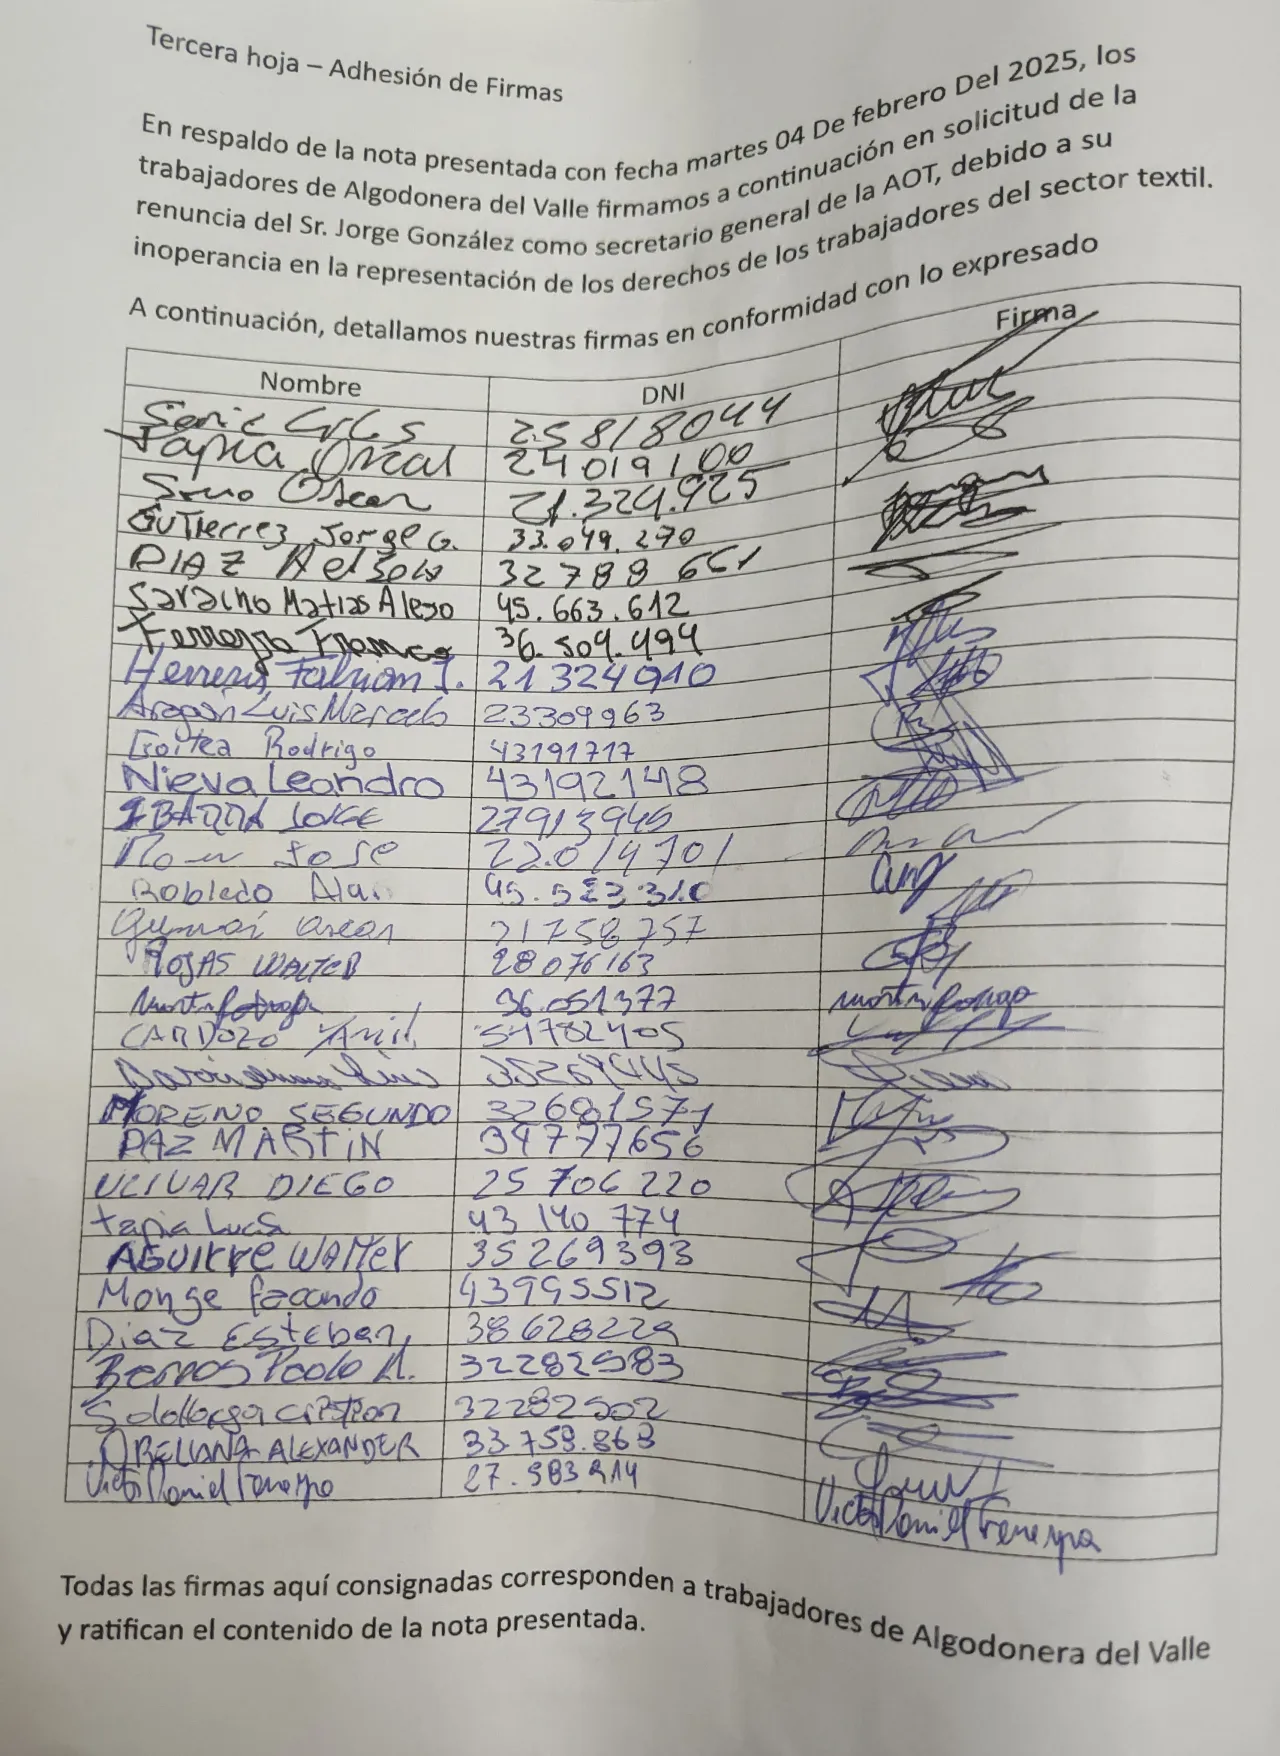 Tercera hoja – Adhesión de Firmas
En respaldo de la nota presentada con fecha martes 04 De febrero Del 2025, los
trabajadores de Algodonera del Valle firmamos a continuación en solicitud de la
renuncia del Sr. Jorge González como secretario general de la AOT, debido a su
inoperancia en la representación de los derechos de los trabajadores del sector textil.
A continuación, detallamos nuestras firmas en conformidad con lo expresado
Nombre DNI Firma
25818044
Tapia Oscar 24019100
Oscar 21.324.925
Gutierrez Jorge G. 33.049.270
DIAZ Nelson 32788661
Saracho Matias Alejo 45.663.612
Ferreyra Franco 36.509.494
Herrera, Fabian J. 21324910
Aragon Luis Marcelo 23309963
Goitea Rodrigo 43191717
Nieva Leandro 43192148
IBARRA JORGE 27913945
Jose 22.014701
Robledo Alan 45.523.310
Oscar 21758757
ROJAS WALTER 28076163
36.051377 Martin
CARDOZO
35269445
MORENO SEGUNDO 32681571
PAZ MARTIN 34777656
ULIVAR DIEGO 25 706 220
tapia Lucas 43 140 774
AGUIRRE WALTER 35269393
Monge facundo 43995512
Diaz Esteban 38628229
Paolo A. 32282583
Cristian 32282502
ORELLANA ALEXANDER 33.759.868
Victor Daniel 27.983.914 Victor Daniel
Todas las firmas aquí consignadas corresponden a trabajadores de Algodonera del Valle
y ratifican el contenido de la nota presentada.